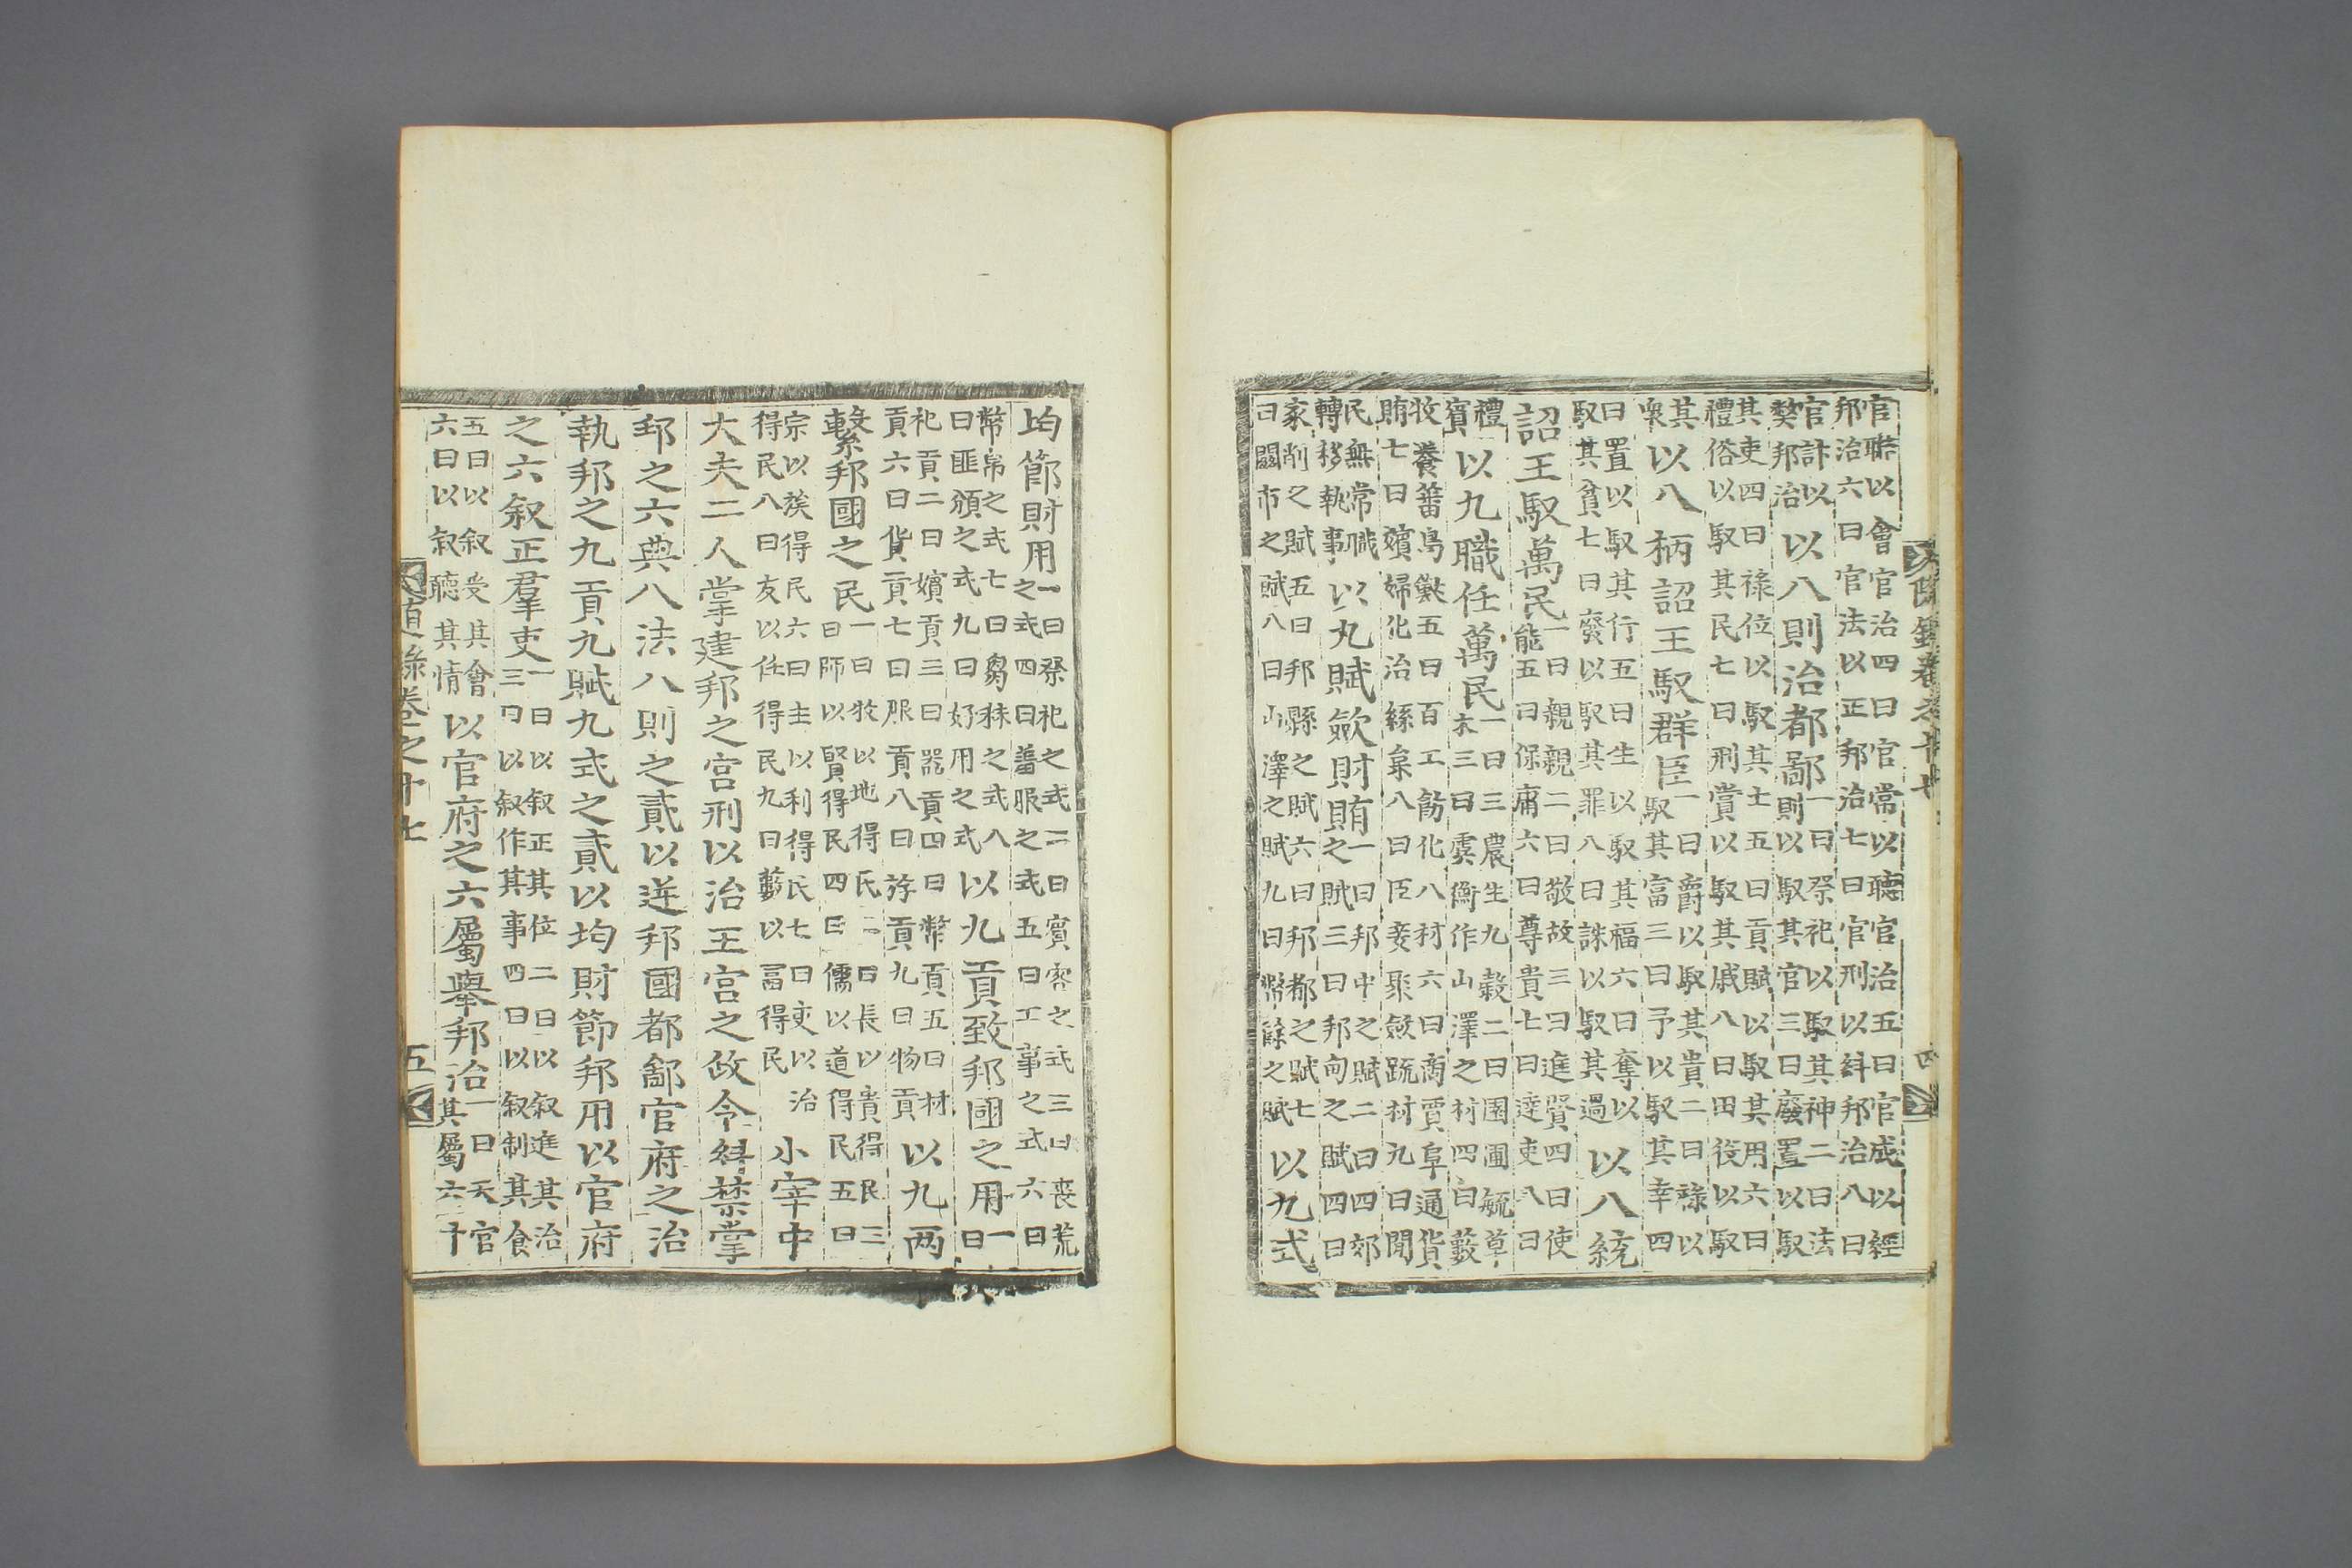 官聯以會官治四曰官常以聽官治五曰官成以經
邦治六曰官法以正邦治七曰官刑以糾邦治八曰
官計以
弊邦治
以八則治都鄙
一曰祭祀以馭其神二曰法
則以馭其官三曰廢置以馭
其吏四曰祿位以馭其士五曰貢賦以馭其用六曰
禮俗以馭其民七曰刑賞以馭其威八曰田役以馭
其
衆
以八柄詔王馭群臣
一曰爵以馭其貴二曰祿以
馭其富三曰予以馭其幸四
曰置以馭其行五曰生以馭其福六曰奪以
馭其貧七曰廢以馭其罪八曰誅以馭其過
以八統
詔王馭萬民
一曰親親二曰敬故三曰進賢四曰使
能五曰保庸六曰尊貴七曰達吏八曰
禮
賓
以九職任萬民
一曰三農生九穀二曰園圃毓草
木三曰虞衡作山澤之材四曰藪
牧養蕃鳥獸五曰百工飭化八材六曰商賈阜通貨
賄七曰嬪婦化治絲枲八曰臣妾聚斂疏材九曰閒
民無常職
轉移執事
以九賦斂財賄
一曰邦中之賦二曰四郊
之賦三曰邦甸之賦四曰
家削之賦五曰邦縣之賦六曰邦都之賦七
曰關市之賦八曰山澤之賦九曰幣餘之賦
以九式
均節財用
一曰祭祀之式二曰賓客之式三曰喪荒
之式四曰羞服之式五曰工事之式六曰
幣帛之式七曰芻秣之式八
曰匪頒之式九曰好用之式
以九貢致邦國之用
一
曰
祀貢二曰嬪貢三曰器貢四曰幣貢五曰材
貢六曰貨貢七曰服貢八曰斿貢九曰物貢
以九两
繫邦國之民
一曰牧以地得民二曰長以貴得民三
曰師以賢得民四曰儒以道得民五曰
宗以族得民六曰主以利得民七曰吏以治
得民八曰友以任得民九曰藪以富得民
小宰中
大夫二人掌建邦之宮刑以治王宮之政令糾禁掌
邦之六典八法八則之貳以逆邦國都鄙官府之治
執邦之九貢九賦九式之貳以均財節邦用以官府
之六叙正羣吏
一曰以叙正其位二曰以叙進其治
三曰以叙作其事四曰以叙制其食
五曰以叙受其會
六曰以叙聽其情
以官府之六屬舉邦治
一曰天官
其屬六十
道錄卷之十七
五